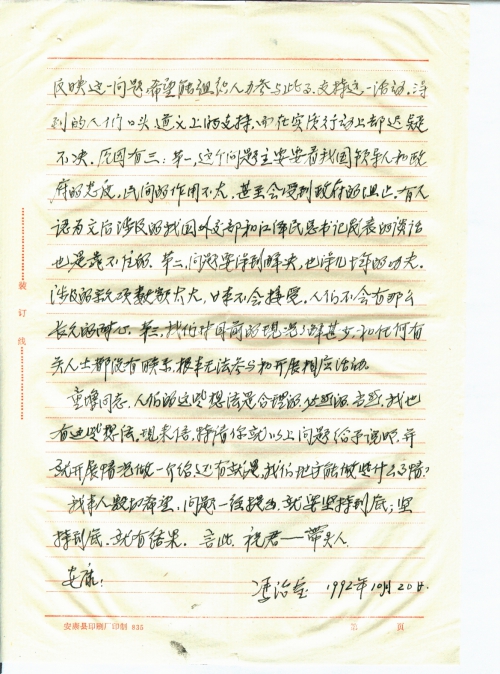 反映这一问题,希望能组织人力参与此事,支持这一活动,得
到的人们口头道义上的支持,而在实际行动上却迟疑
不决。原因有三:第一,这个问题主要要看我国领导人和政
府的态度,民间的作用不大,甚至会受到政府的阻止。有人
认为文后涉及的我国外交部和江泽民总书记发表的谈话
也是靠不住的。第二,问题要得到解决,也得几十年的功夫。
涉及的款项数额太大,日本不会接受,人们不会有那么
长久的耐心。第三,我们对目前的现况了解甚少,和任何有
关人士都没有联系,根本无法参与和开展相应活动。
童增同志,人们的这些想法是合理的,当然,我也
有这些想法。现来信,特请你就以上问题给予说明,并
就开展情况做一介绍,还有就是,我们地方能做些什么事情?
我本人数次希望,问题一经提出,就要坚持到底;坚
持到底,就有结果。言此,祝君——带头人
安康!
冯治宝 1992年10月20日
装订线
安肃县印刷厂印制 835 第 页